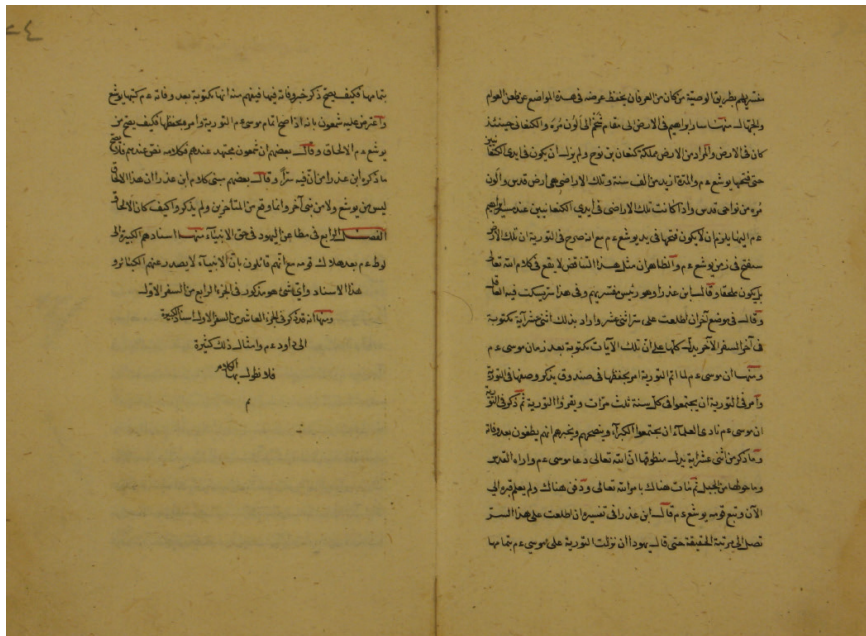 مفسريهم بطريق الوصية من كان من العرفان يحفظ عرضه فى هذه المواضع عن طعن العوام
والجهال منها سار ابراهيم فى الارض الى مقام شخم الى الون مره والكنعانى حينئذ
كان فى الارض والمراد من الارض مملكة كنعان بن نوح ولم يزل ان يكون فى ايدى الكنعانيين
حتى فتحها يوشع ءم والمدة ازيد من الف سنة وتلك الاراضى هى ارض قدس والون
مره من نواحى قدس واذا كانت تلك الاراضى فى ايدى الكنعانيين عند سير ابراهيم
ءم اليها يلزم ان لا يكون فتحها فى يد يوشع ءم مع انه صرح فى التورية ان تلك الارض
ستفتح فى زمن يوشع ءم والظاهر ان مثل هذا التناقض لا يقع فى كلام الله تعالى
بل يكون ملحقا وقال ابن عذرا وهو رئيس مفسريهم وفى هذا سر يسكت فيه العاقل
وقال فى موضع آخر ان اطلعت على سر اثنى عشر واراد بذلك اثنى عشر آية مكتوبة
فى آخر السفر الآخر يدل كلها على ان تلك الآيات مكتوبة بعد زمان موسى ءم
ومنها ان موسى ءم لما اتم التورية امر بحفظها فى صندوق يذكر وصفها فى التورية
وامر فى التورية ان يجتمعوا فى كل سنة ثلث مرات ويقرؤا التورية ثم ذكر فى التورية
ان موسى ءم نادى العلماء ان يجتمعوا الكبراء وينصحهم ويخبرهم انهم يطغون بعد وفاته
وما ذكر من اثنى عشر آية يدل منطوقها ان الله تعالى دعا موسى ءم واراه القدس
وما حولها من الجبل ثم مات هناك بامر الله تعالى ودفن هناك ولم يعلم قبره الى
الآن وتبع قومه يوشع ءم قال ابن عذرا فى تفسيره ان اطلعت على هذا الستر
تصل الى مرتبة الحقيقة حتى قال يهودا ان نزلت التورية على موسى ءم بتمامها
بتمامها فكيف يصح ذكر خبر وفاته فيها فيفهم منه انها مكتوبة بعد وفاته ءم كتبها يوشع
واعترض عليه شمعون بانه اذا صح اتمام موسى ءم التورية وامره بحفظها فكيف يصح من
يوشع ءم الالحاق وقال بعضهم ان شمعون مجتهد عندهم فكلامه نص عندهم فلا يصح
ما ذكره ابن عذرا من ان فيه سرا وقال بعضهم ينبئ كلام ابن عذرا ان هذا الالحاق
ليس من يوشع ولا من نبى آخر وانما وقع من المتأخرين ولم يذكروا كيف كان الالحاق
الفصل الرابع فى مطاعن اليهود فى حق الانبياء منها اسنادهم الكبيرة الى
لوط ءم بعد هلاك قومه مع انهم قائلون بان الانبياء لا يصدر عنهم الكبائر و
هذا الاسناد والتحاشى هو مذكور فى الجزء الرابع من السفر الاول
ومنها انه قد ذكر فى الجزء العاشر من السفر الاول اسناد الكبيرة
الى داود ءم وامثال ذلك كثيرة
فلا نطول بها الكلام
م